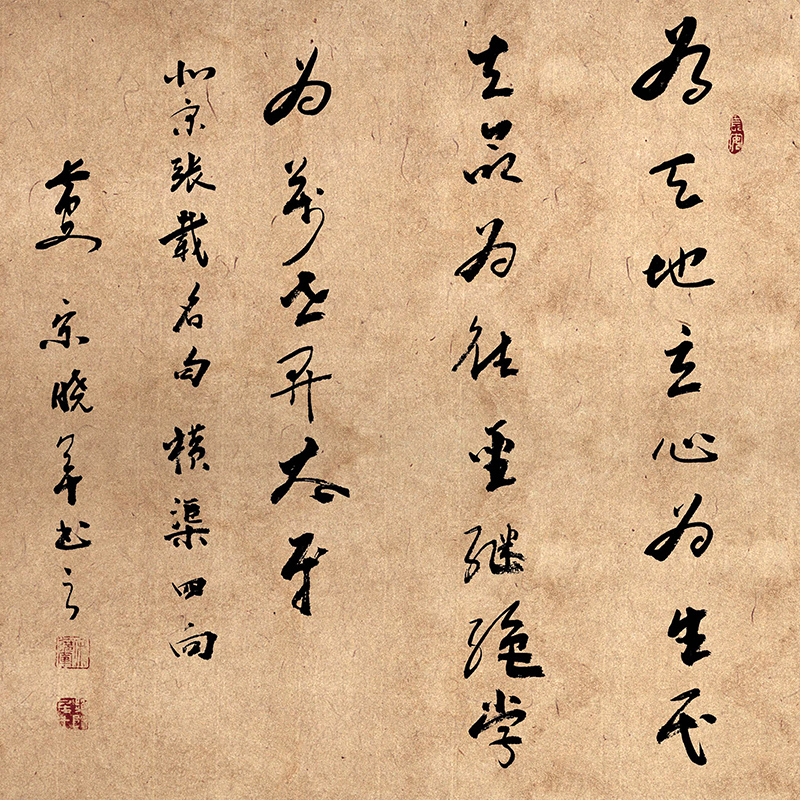 為天地立心为生民
立命为往圣继绝学
为萬世开太平
北宋張載名句横渠四句
夏 宋晓军书之